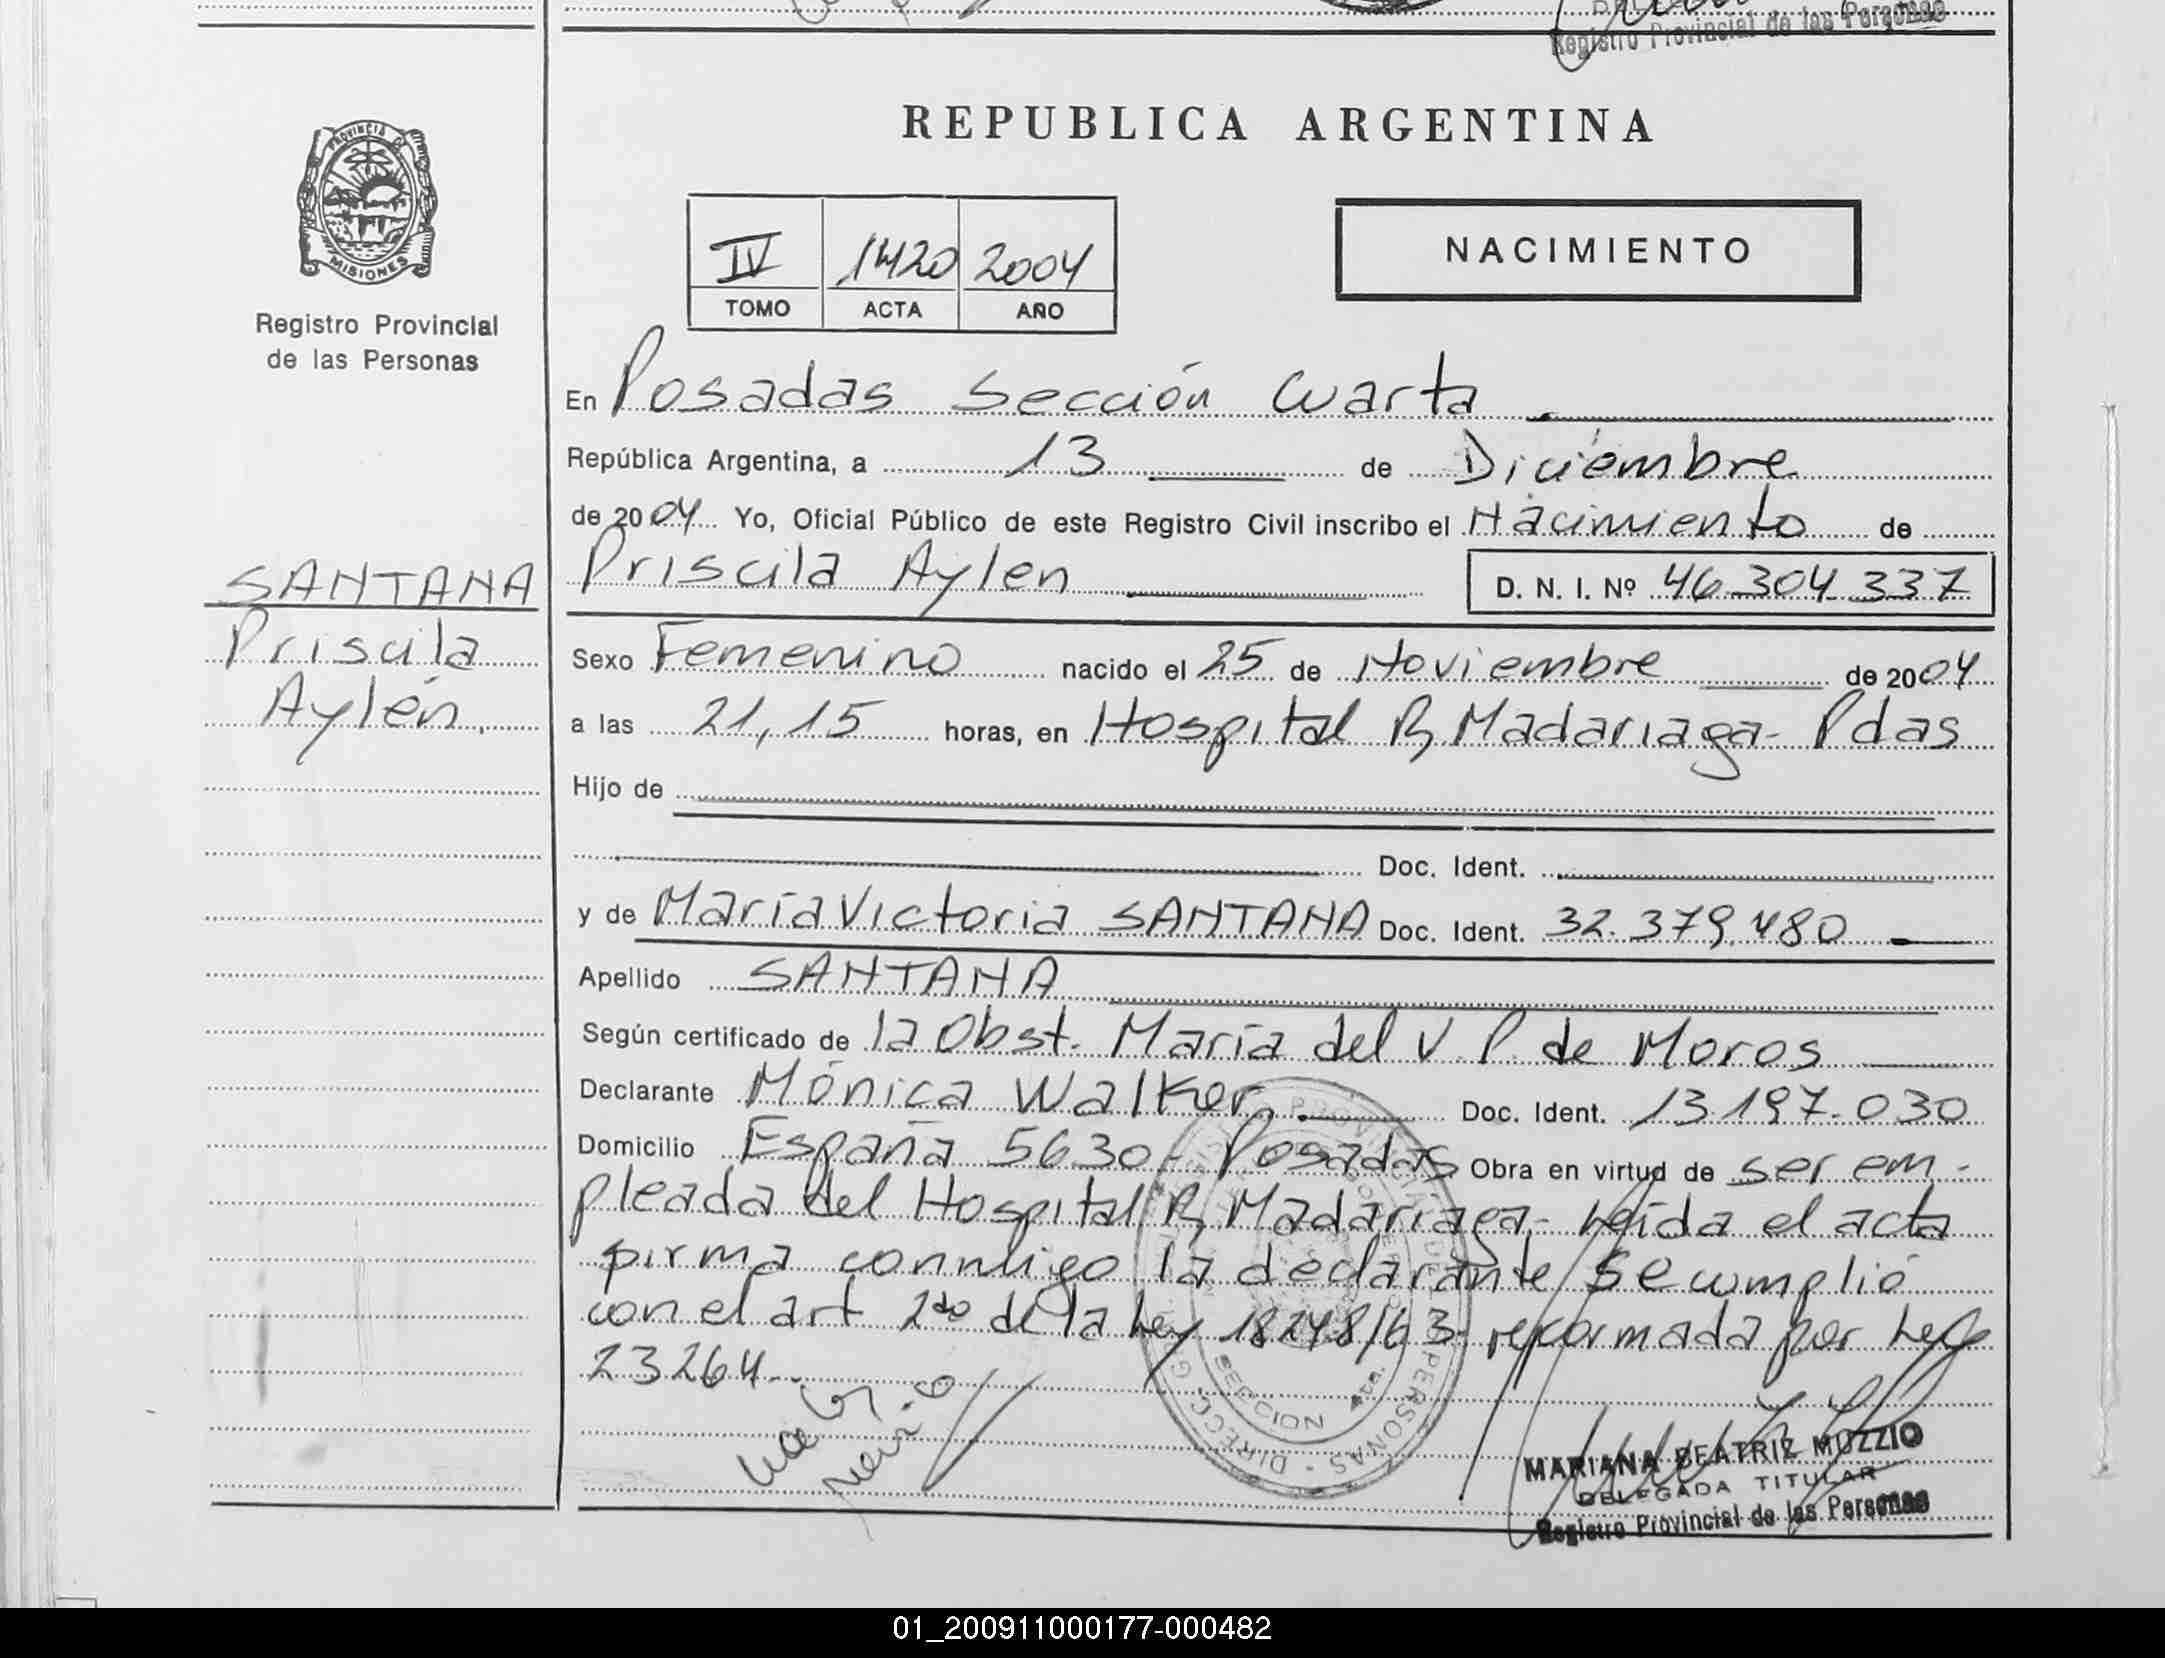 Registro Provincial de las Personas
REPUBLICA ARGENTINA
PROVINCIA D
MISIONES
Registro Provincial
de las Personas
IV 1420 2004
TOMO ACTA AÑO
NACIMIENTO
En Posadas Sección Cuarta
República Argentina, a 13 de Diciembre
de 2004 Yo, Oficial Público de este Registro Civil inscribo el Nacimiento de
Priscila Aylen D. N. I. Nº 46.304.337
SANTANA
Priscila
Aylén.
Sexo Femenino nacido el 25 de Noviembre de 2004
a las 21,15 horas, en Hospital R, Madariaga- Pdas
Hijo de
Doc. Ident.
y de María Victoria SANTANA Doc. Ident. 32.379.480
Apellido SANTANA
Según certificado de la Obst. María del V. P. de Moros
Declarante Mónica Walker Doc. Ident. 13.197.030
Domicilio España 5630- Posadas Obra en virtud de ser em-
pleada del Hospital R, Madariaga- Leída el acta
firma conmigo la declarante se cumplió
con el art 2do de la Ley 18248/63- reformada por Ley
23264.-
SECCION
MARIANA BEATRIZ MUZZIO
DELEGADA TITULAR
Registro Provincial de las Personas
01_200911000177-000482